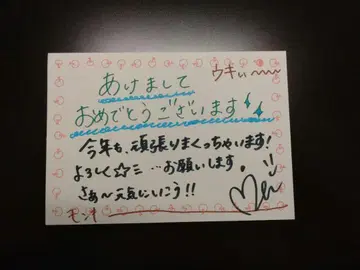 ウキぃ〜〜
あけまして
おめでとうございます
今年も、頑張りまくっちゃいます!
よろしく☆ミ…お願いします。
さぁ〜元気にいこう!!
モンキ